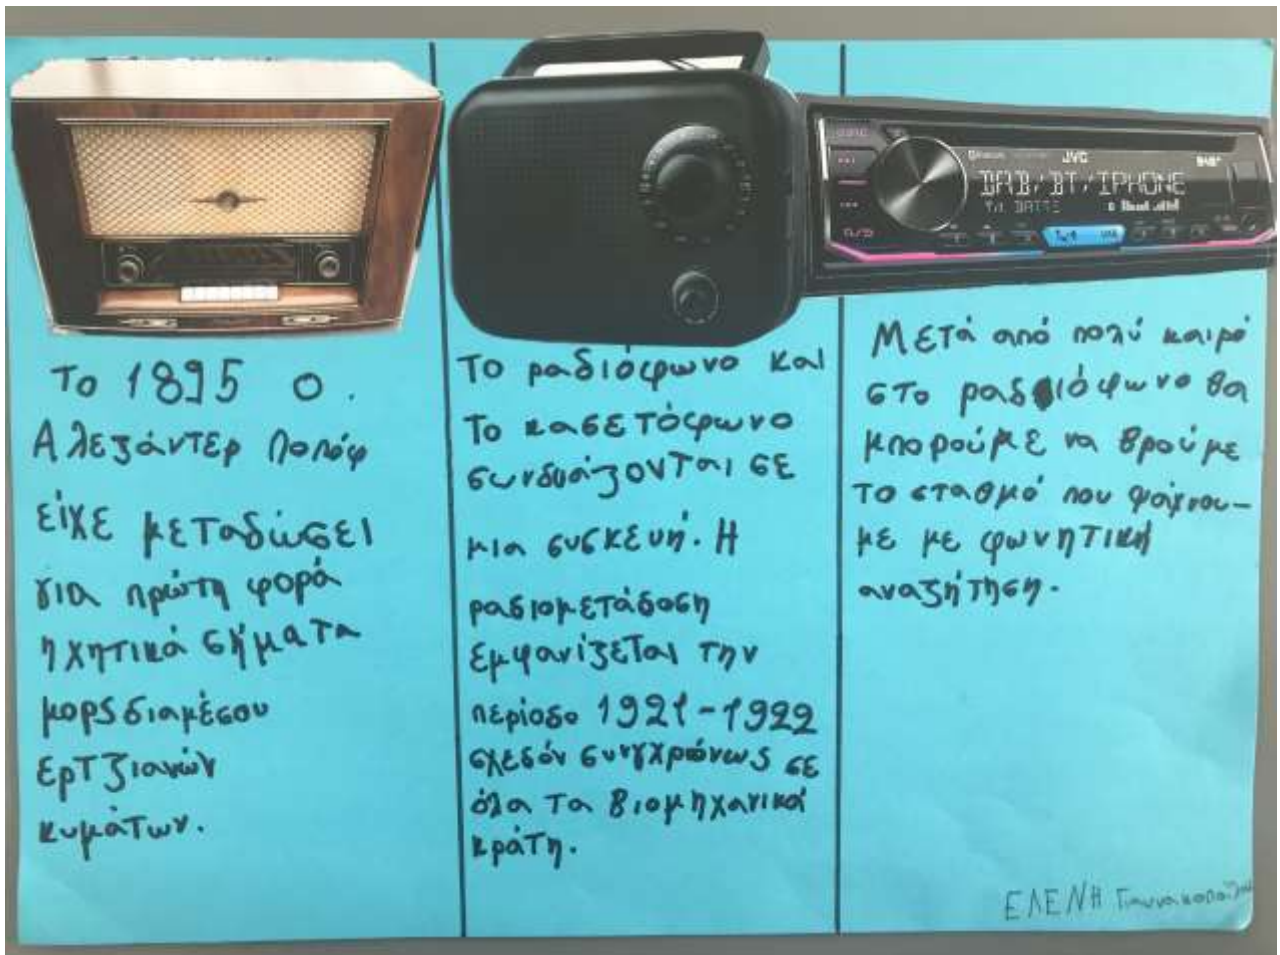 JVC
DAB/BT/IPHONE
Το 1895 ο.
Αλεξάντερ Ποπόφ
είχε μεταδώσει
για πρώτη φορά
ηχητικά σήματα
μορς διαμέσου
ερτζιανών
κυμάτων.
Το ραδιόφωνο και
το κασετόφωνο
συνδυάζονται σε
μια συσκευή. Η
ραδιομετάδοση
εμφανίζεται την
περίοδο 1921-1922
σχεδόν συγχρόνως σε
όλα τα βιομηχανικά
κράτη.
Μετά από πολύ καιρό
στο ραδιόφωνο θα
μπορούμε να βρούμε
το σταθμό που ψάχνου-
με με φωνητική
αναζήτηση.
ΕΛΕΝΗ